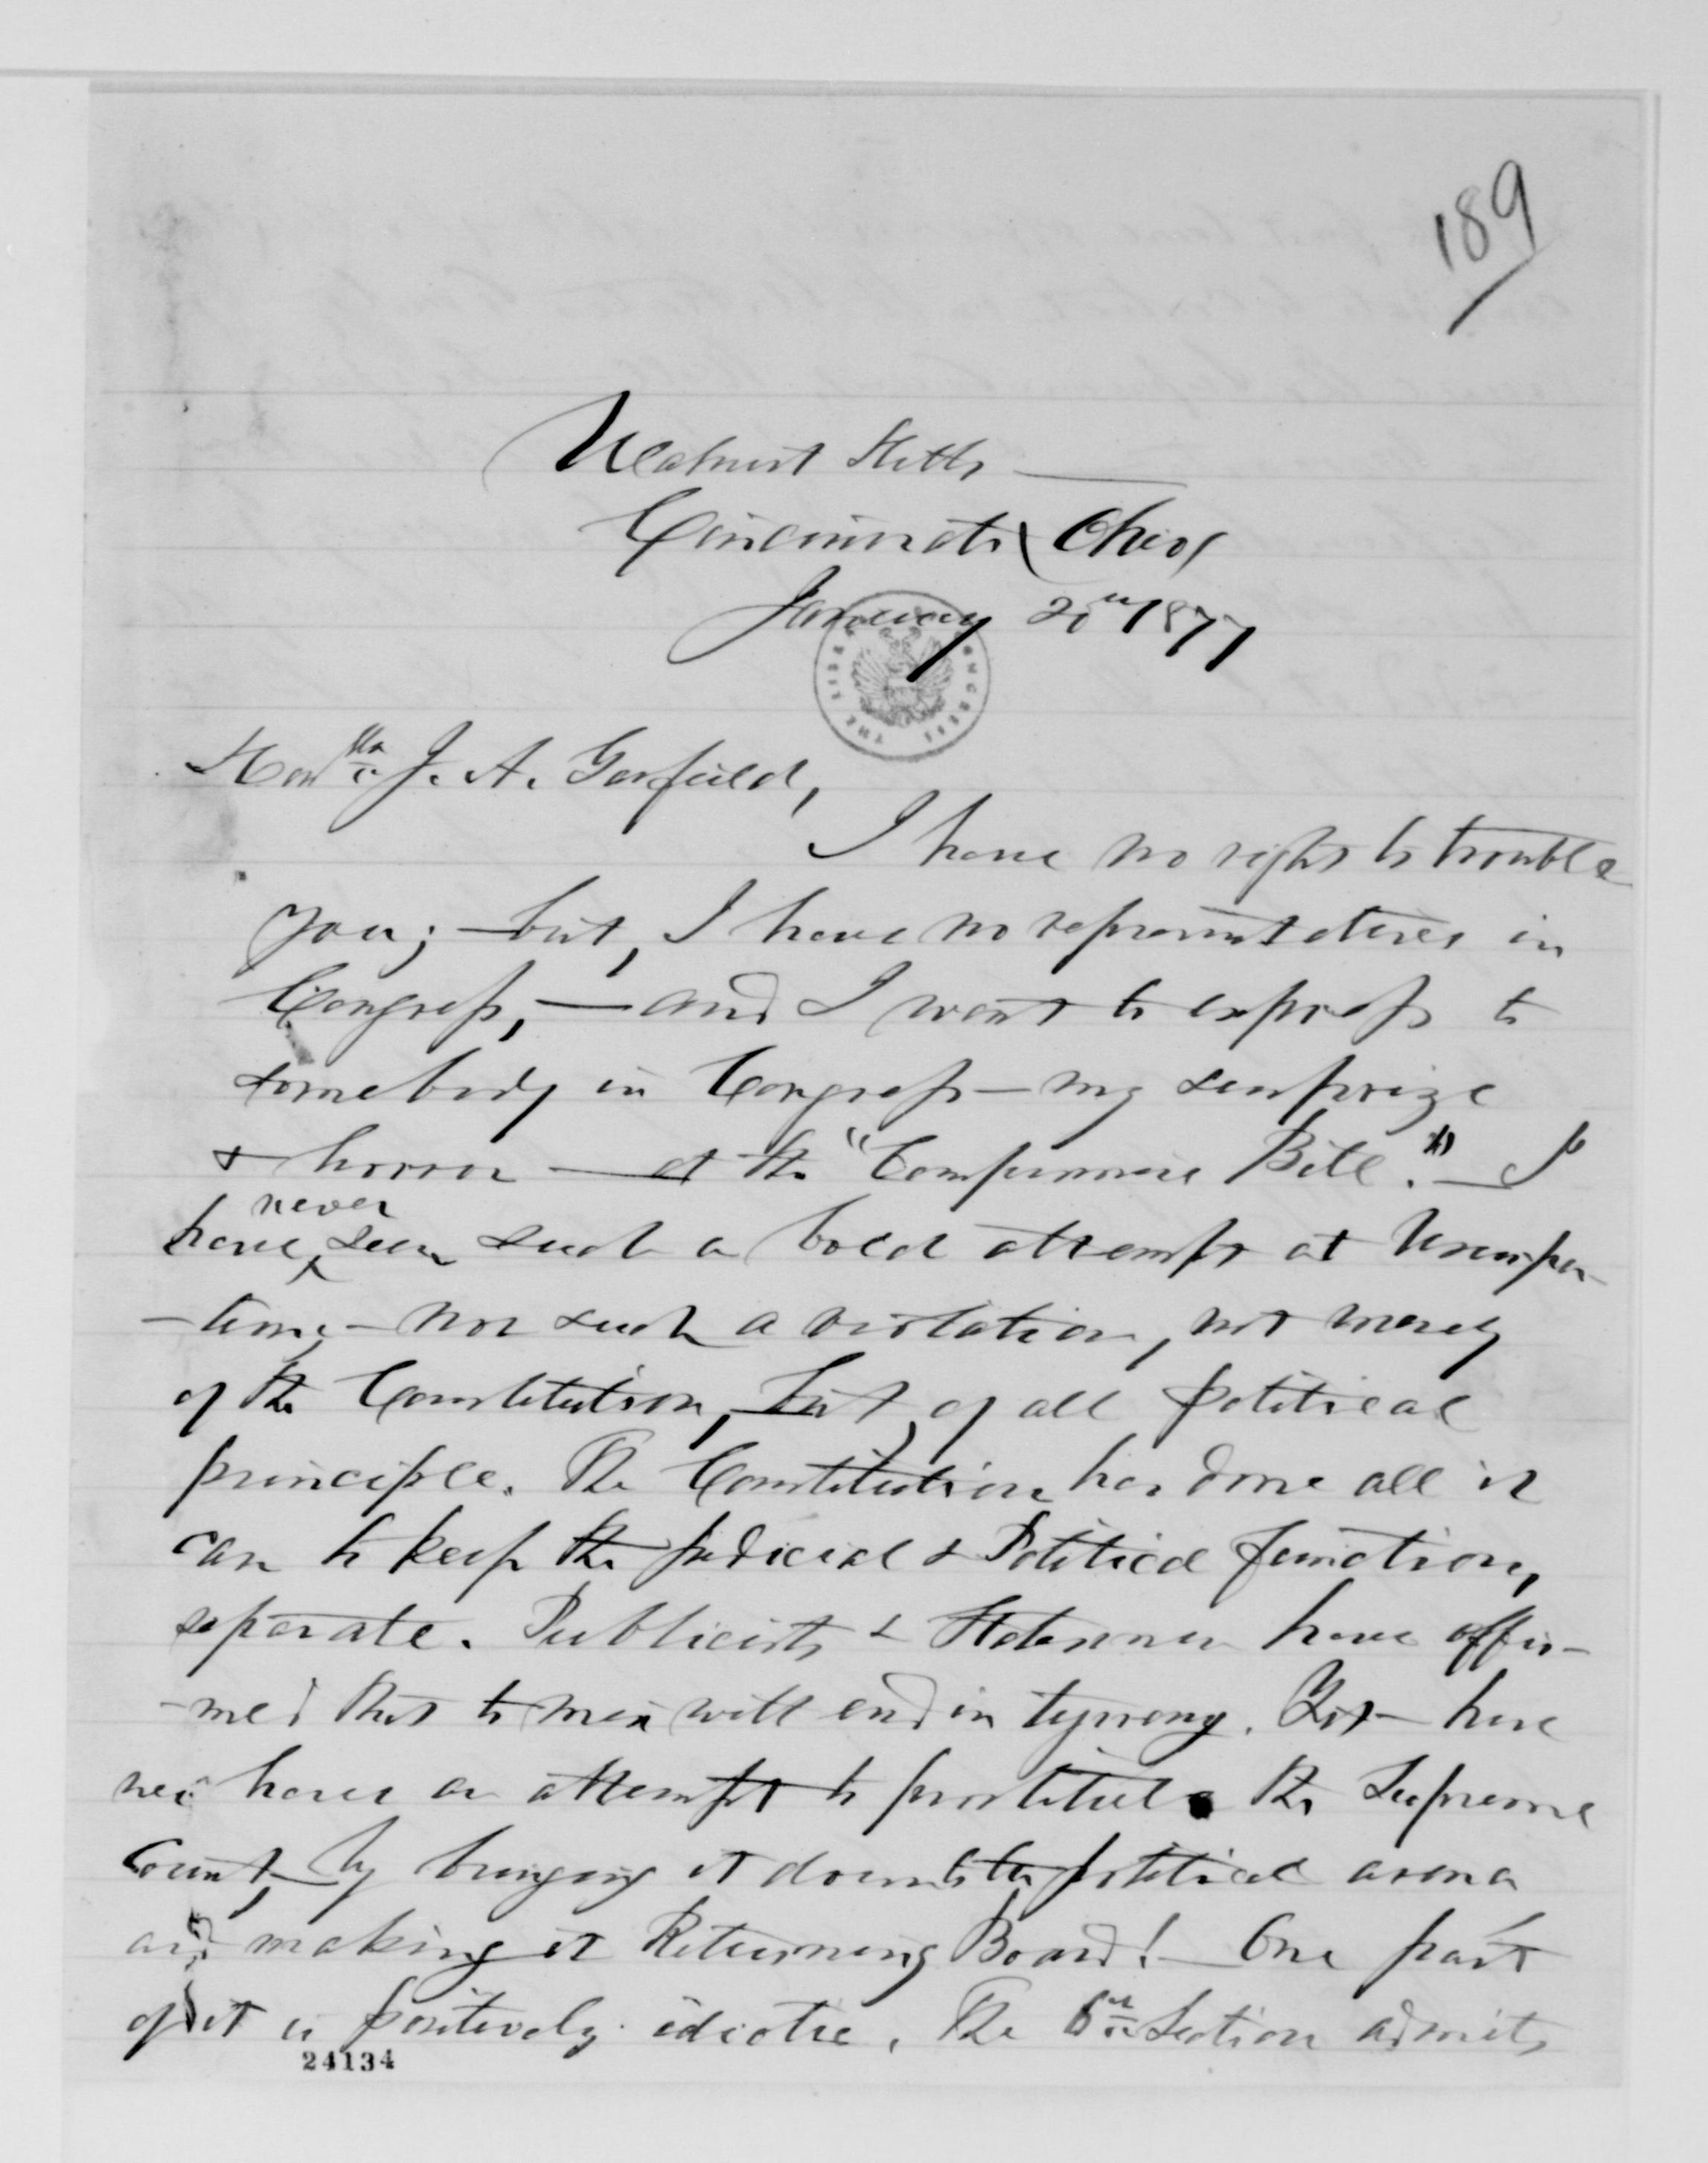 189
Walnut Hills
Cincinnati Ohio
January 20th 1877
Honble J. A. Garfield,
I have no right to trouble
you; — but, I have no representatives in
Congress, — and I want to express to
somebody in Congress — my surprize
& horror — at the "Compromise Bill." — I
have never seen such a bold attempt at Usurpa-
-tion, — nor such a violation, not merely
of the Constitution, but, of all political
principle. The Constitution has done all it
can to keep the judicial & Political function,
separate. Publicists & Statesmen have affir-
-med that to mix will end in tyrrany. Yet — here
we have an attempt to prostitute the Supreme
Court, by bringing it down to the political arena
and making it Returning Board! — One part
of it is positively idiotic. The 6th Section admits
24134